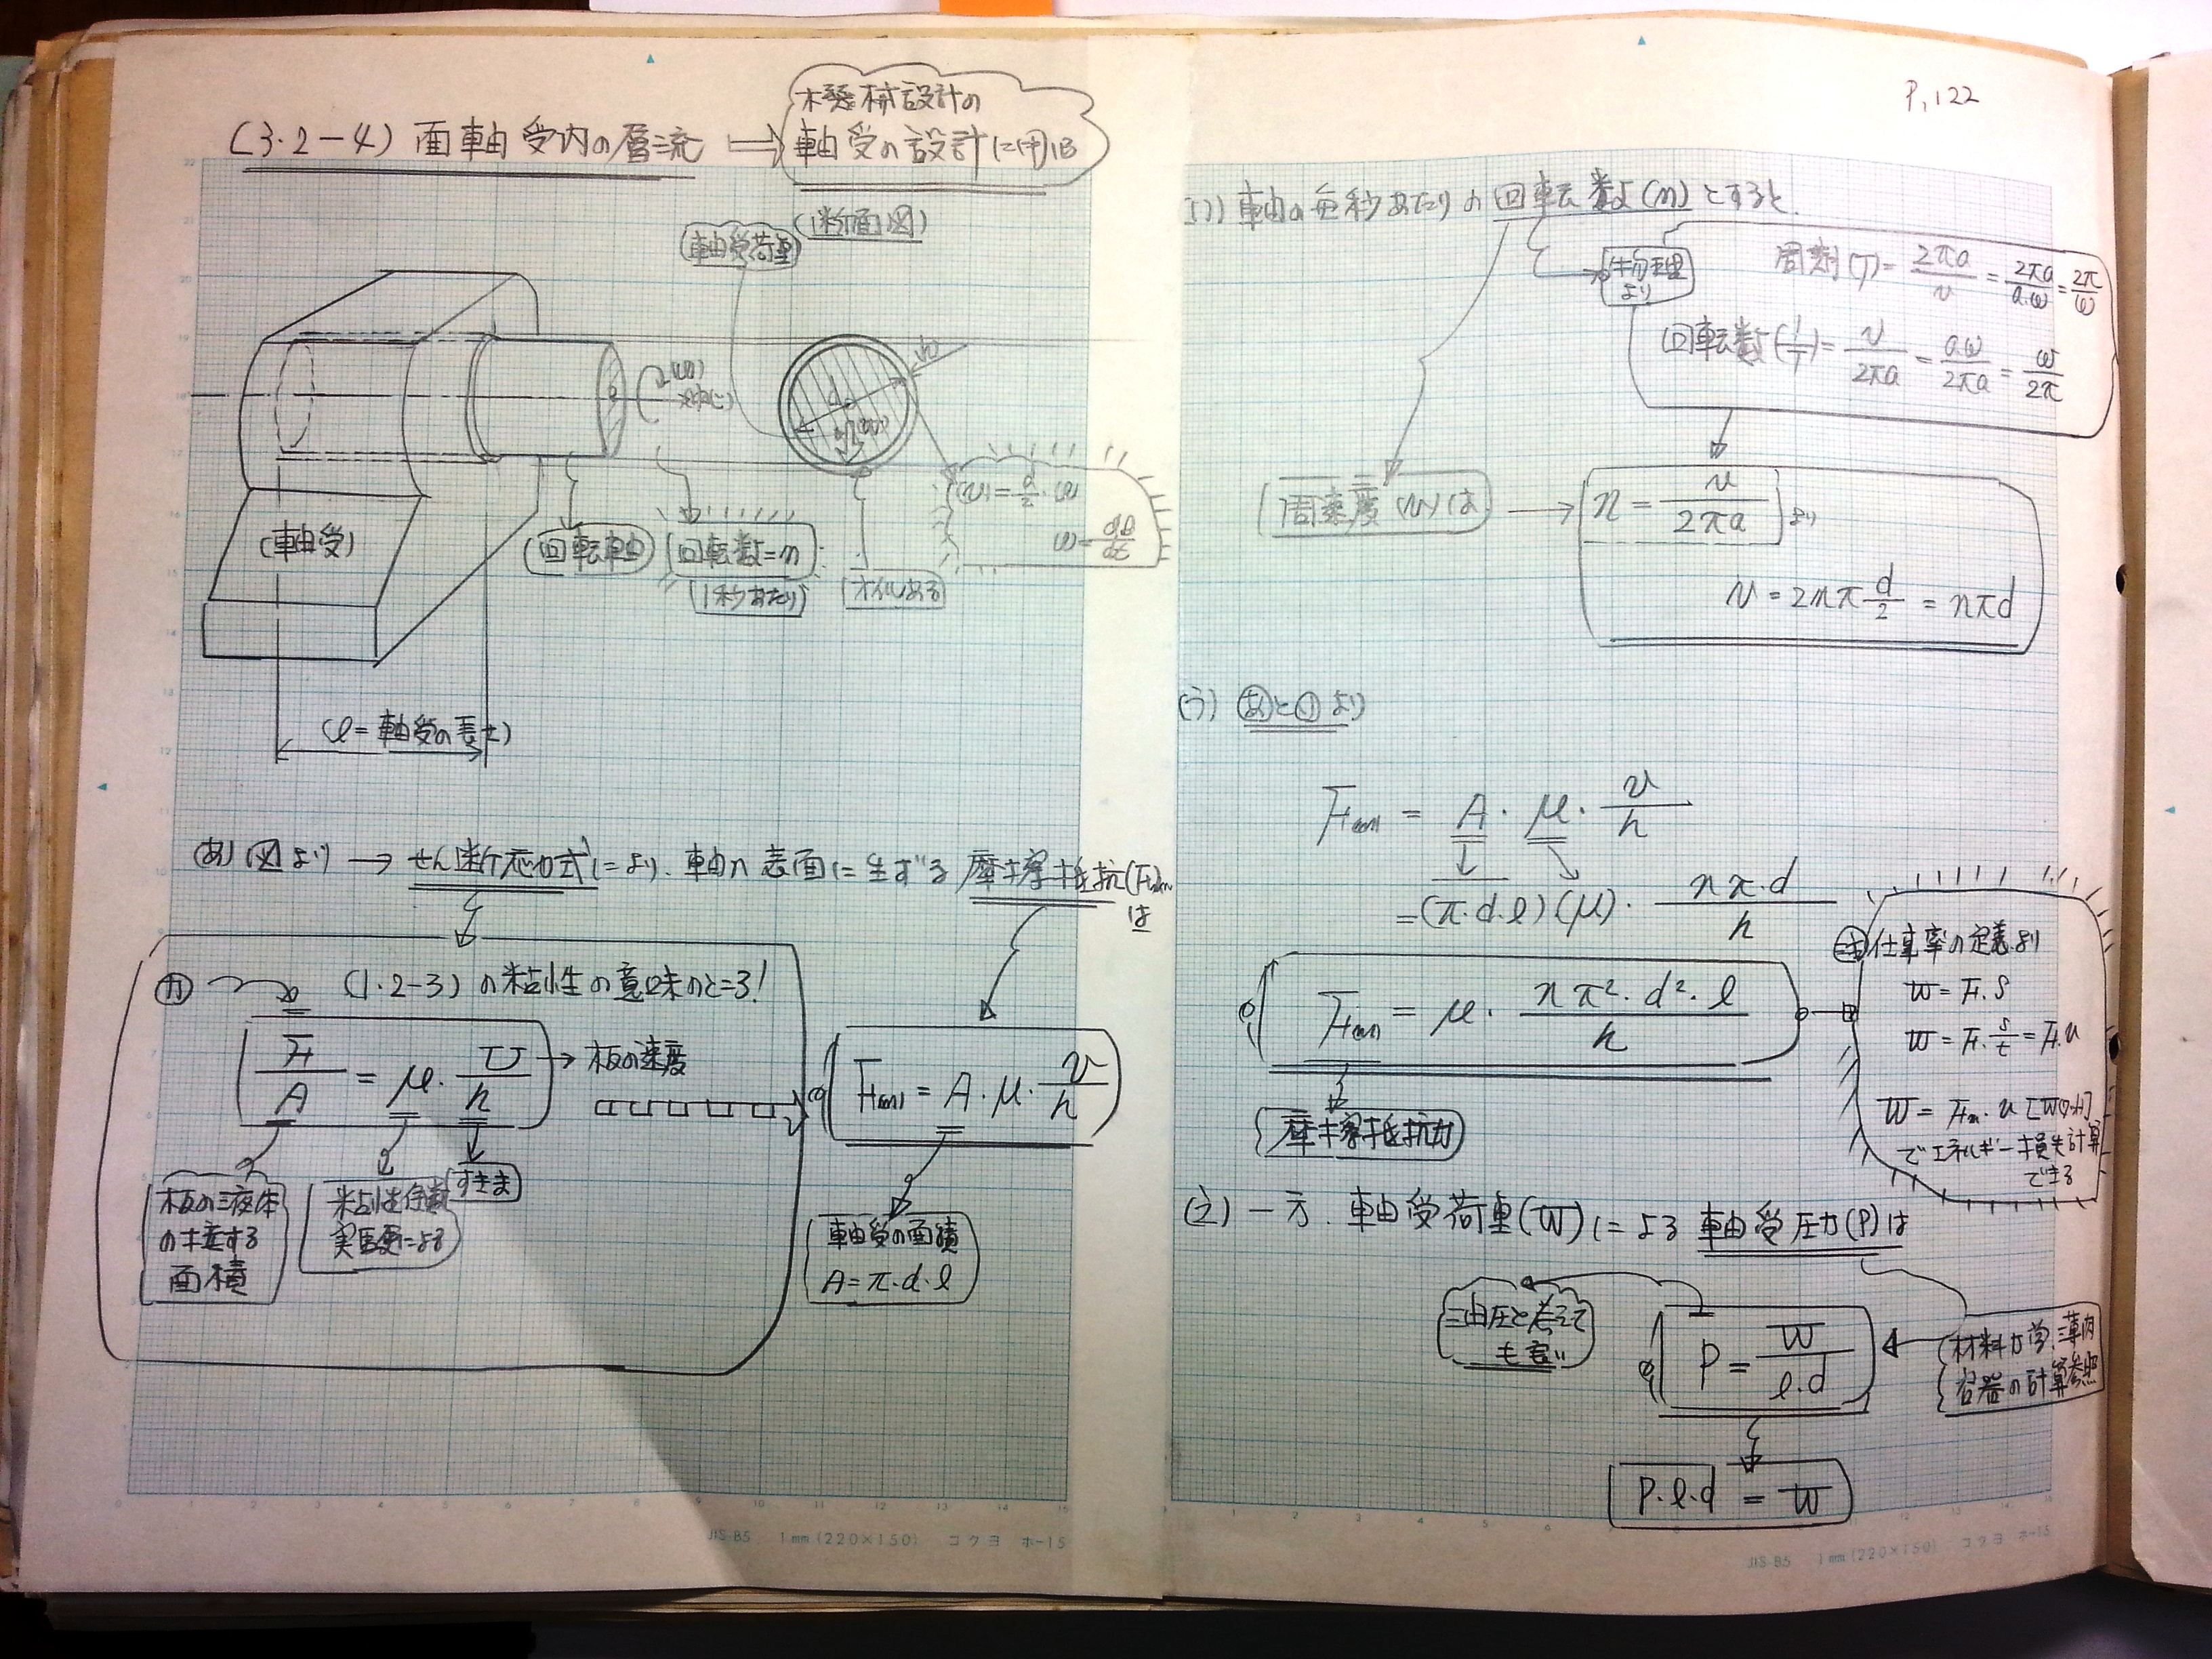 P.122
(3・2-4) 面軸受内の層流
機械設計の
軸受の設計に用いる
(断面図)
軸受荷重
(軸受)
回転軸
回転数=n
(1秒あたり)
オイルある
d
(v)=d/2・ω
ω=dθ/dt
(l=軸受の長さ)
(あ) 図より → せん断応力式により、軸の表面に生ずる摩擦抵抗(F)
は
(1.2-3) の粘性の意味のところ!
F/A = μ・U/h → 板の速度
板の液体
の接する
面積
粘性係数
実験による
すきま
F = A・μ・v/h
軸受の面積
A=π・d・l
(い) 軸の毎秒あたりの回転数(n)とすると
物理
より
周期(T)= 2πa/v = 2πa/a・ω = 2π/ω
回転数(1/T)= v/2πa = a・ω/2πa = ω/2π
周速度(v)は → n = v/2πa より
v = 2nπ d/2 = nπd
(う) あといより
F = A・μ・v/h
=(π・d・l)(μ)・nπ・d/h
F = μ・nπ²・d²・l/h
摩擦抵抗力
仕事率の定義より
W=F・S
W=F・S/t=F・u
でエネルギー損失計算
できる
(え) 一方、軸受荷重(W)による軸受圧力(P)は
油圧と考えて
も良い
P = W/l・d
材料力学、薄肉
容器の計算参照
P・l・d = W
JIS-B5 1mm(220×150) コクヨ ホ-15
JIS-B5 1mm(220×150) コクヨ ホ-15